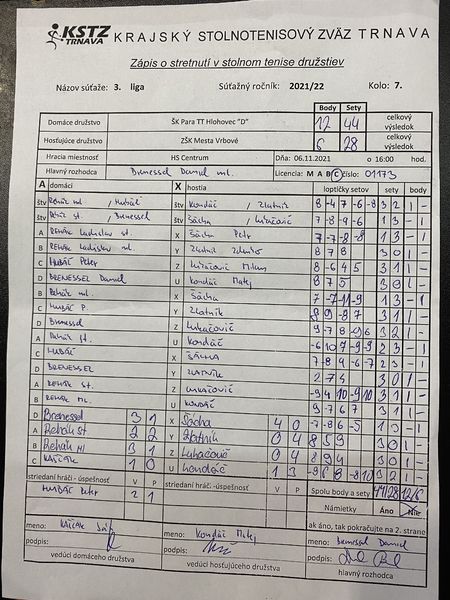 KSTZ TRNAVA KRAJSKÝ STOLNOTENISOVÝ ZVÄZ TRNAVA
Zápis o stretnutí v stolnom tenise družstiev
Názov súťaže: 3. liga Súťažný ročník: 2021/22 Kolo: 7.
Body Sety
Domáce družstvo ŠK Para TT Hlohovec "D" 12 44 celkový výsledok
Hosťujúce družstvo ZŠK Mesta Vrbové 6 28 celkový výsledok
Hracia miestnosť HS Centrum Dňa: 06.11.2021 o 16:00 hod.
Hlavný rozhodca Drenessel Daniel ml. Licencia: M A B C číslo: 01173
A domáci X hostia loptičky setov sety body
štv Rehák ml. / Hubáč štv Kondáč / Zlatník 8 -4 7 -6 -8 3 2 1 -
štv Rehák st. / Drenessel štv Šácha / Lukačovič 7 -8 -9 -6 1 3 - 1
A Rehák Ladislav st. X Šácha Petr 7 -7 -8 -8 1 3 - 1
B Rehák Ladislav ml. Y Zlatník 8 7 8 3 0 1 -
C Hubáč Peter Z Lukačovič Milan 8 -6 4 5 3 1 1 -
D Drenessel Daniel U Kondáč Matej 8 7 5 3 0 1 -
B Rehák ml. X Šácha 7 -7 -11 -9 1 3 - 1
C Hubáč P. Y Zlatník 3 1 1 -
D Drenessel Z Lukačovič 3 2 1 -
A Rehák st. U Kondáč 2 3 - 1
C Hubáč X Šácha 2 3 - 1
D Drenessel Y Zlatník 3 0 1 -
A Rehák st. Z Lukačovič 3 1 1 -
B Rehák ml. U Kondáč 9 -7 6 7 3 1 1 -
D Drenessel 3 1 X Šácha 4 0 1 3 - 1
A Rehák st 2 2 Y Zlatník 0 4 8 5 9 3 0 1 -
B Rehák ml 3 1 Z Lukačovič 0 4 8 9 4 3 0 1 -
C 1 0 U Kondáč 1 3 3 2 1 -
striedaní hráči -úspešnosť V P striedaní hráči -úspešnosť V P Spolu body a sety 44/28 12/6
Hubáč Peter 2 1 Námietky Áno Nie
ak áno, tak pokračujte na 2. strane
meno: meno: Kondáč Matej meno: Drenessel Daniel
podpis: podpis: podpis:
vedúci domáceho družstva vedúci hosťujúceho družstva hlavný rozhodca